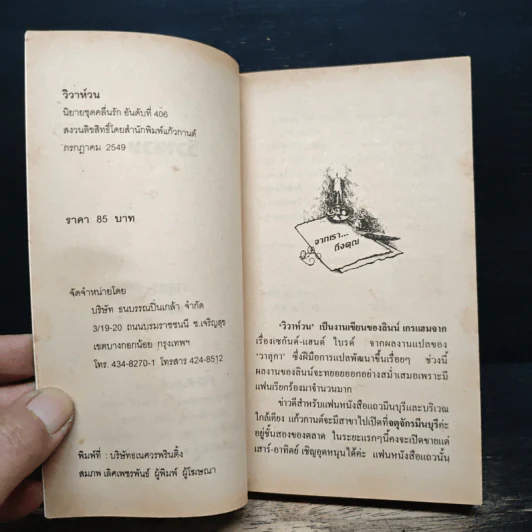 วิวาห์วน
นิยายชุดคลื่นรัก อันดับที่ 406
สงวนลิขสิทธิ์โดยสำนักพิมพ์แก้วกานต์
กรกฎาคม 2549
ราคา 85 บาท
จัดจำหน่ายโดย
บริษัท ธนบรรณปิ่นเกล้า จำกัด
3/19-20 ถนนบรมราชชนนี ซ.เจริญสุข
เขตบางกอกน้อย กรุงเทพฯ
โทร. 434-8270-1 โทรสาร 424-8512
พิมพ์ที่ : บริษัทธเนศวรพรินติ้ง
สมภพ เลิศเพชรพันธ์ ผู้พิมพ์ ผู้โฆษณา
จากเรา...
ถึงคุณ
'วิวาห์วน' เป็นงานเขียนของลินน์ เกรแฮมจาก
เรื่องเซกันด์-แฮนด์ ไบรด์ จากผลงานแปลของ
'วาลุกา' ซึ่งฝีมือการแปลพัฒนาขึ้นเรื่อยๆ ช่วงนี้
ผลงานของลินน์จะทยอยออกอย่างสม่ำเสมอเพราะมี
แฟนเรียกร้องมาจำนวนมาก
ข่าวดีสำหรับแฟนหนังสือแถวมีนบุรีและบริเวณ
ใกล้เคียง แก้วกานต์จะมีสาขาไปเปิดที่จตุจักรมีนบุรีค่ะ
อยู่ชั้นสองของตลาด ในระยะแรกๆนี้คงจะเปิดขายแต่
เสาร์-อาทิตย์ เชิญอุดหนุนได้ค่ะ แฟนหนังสือแถวนั้น